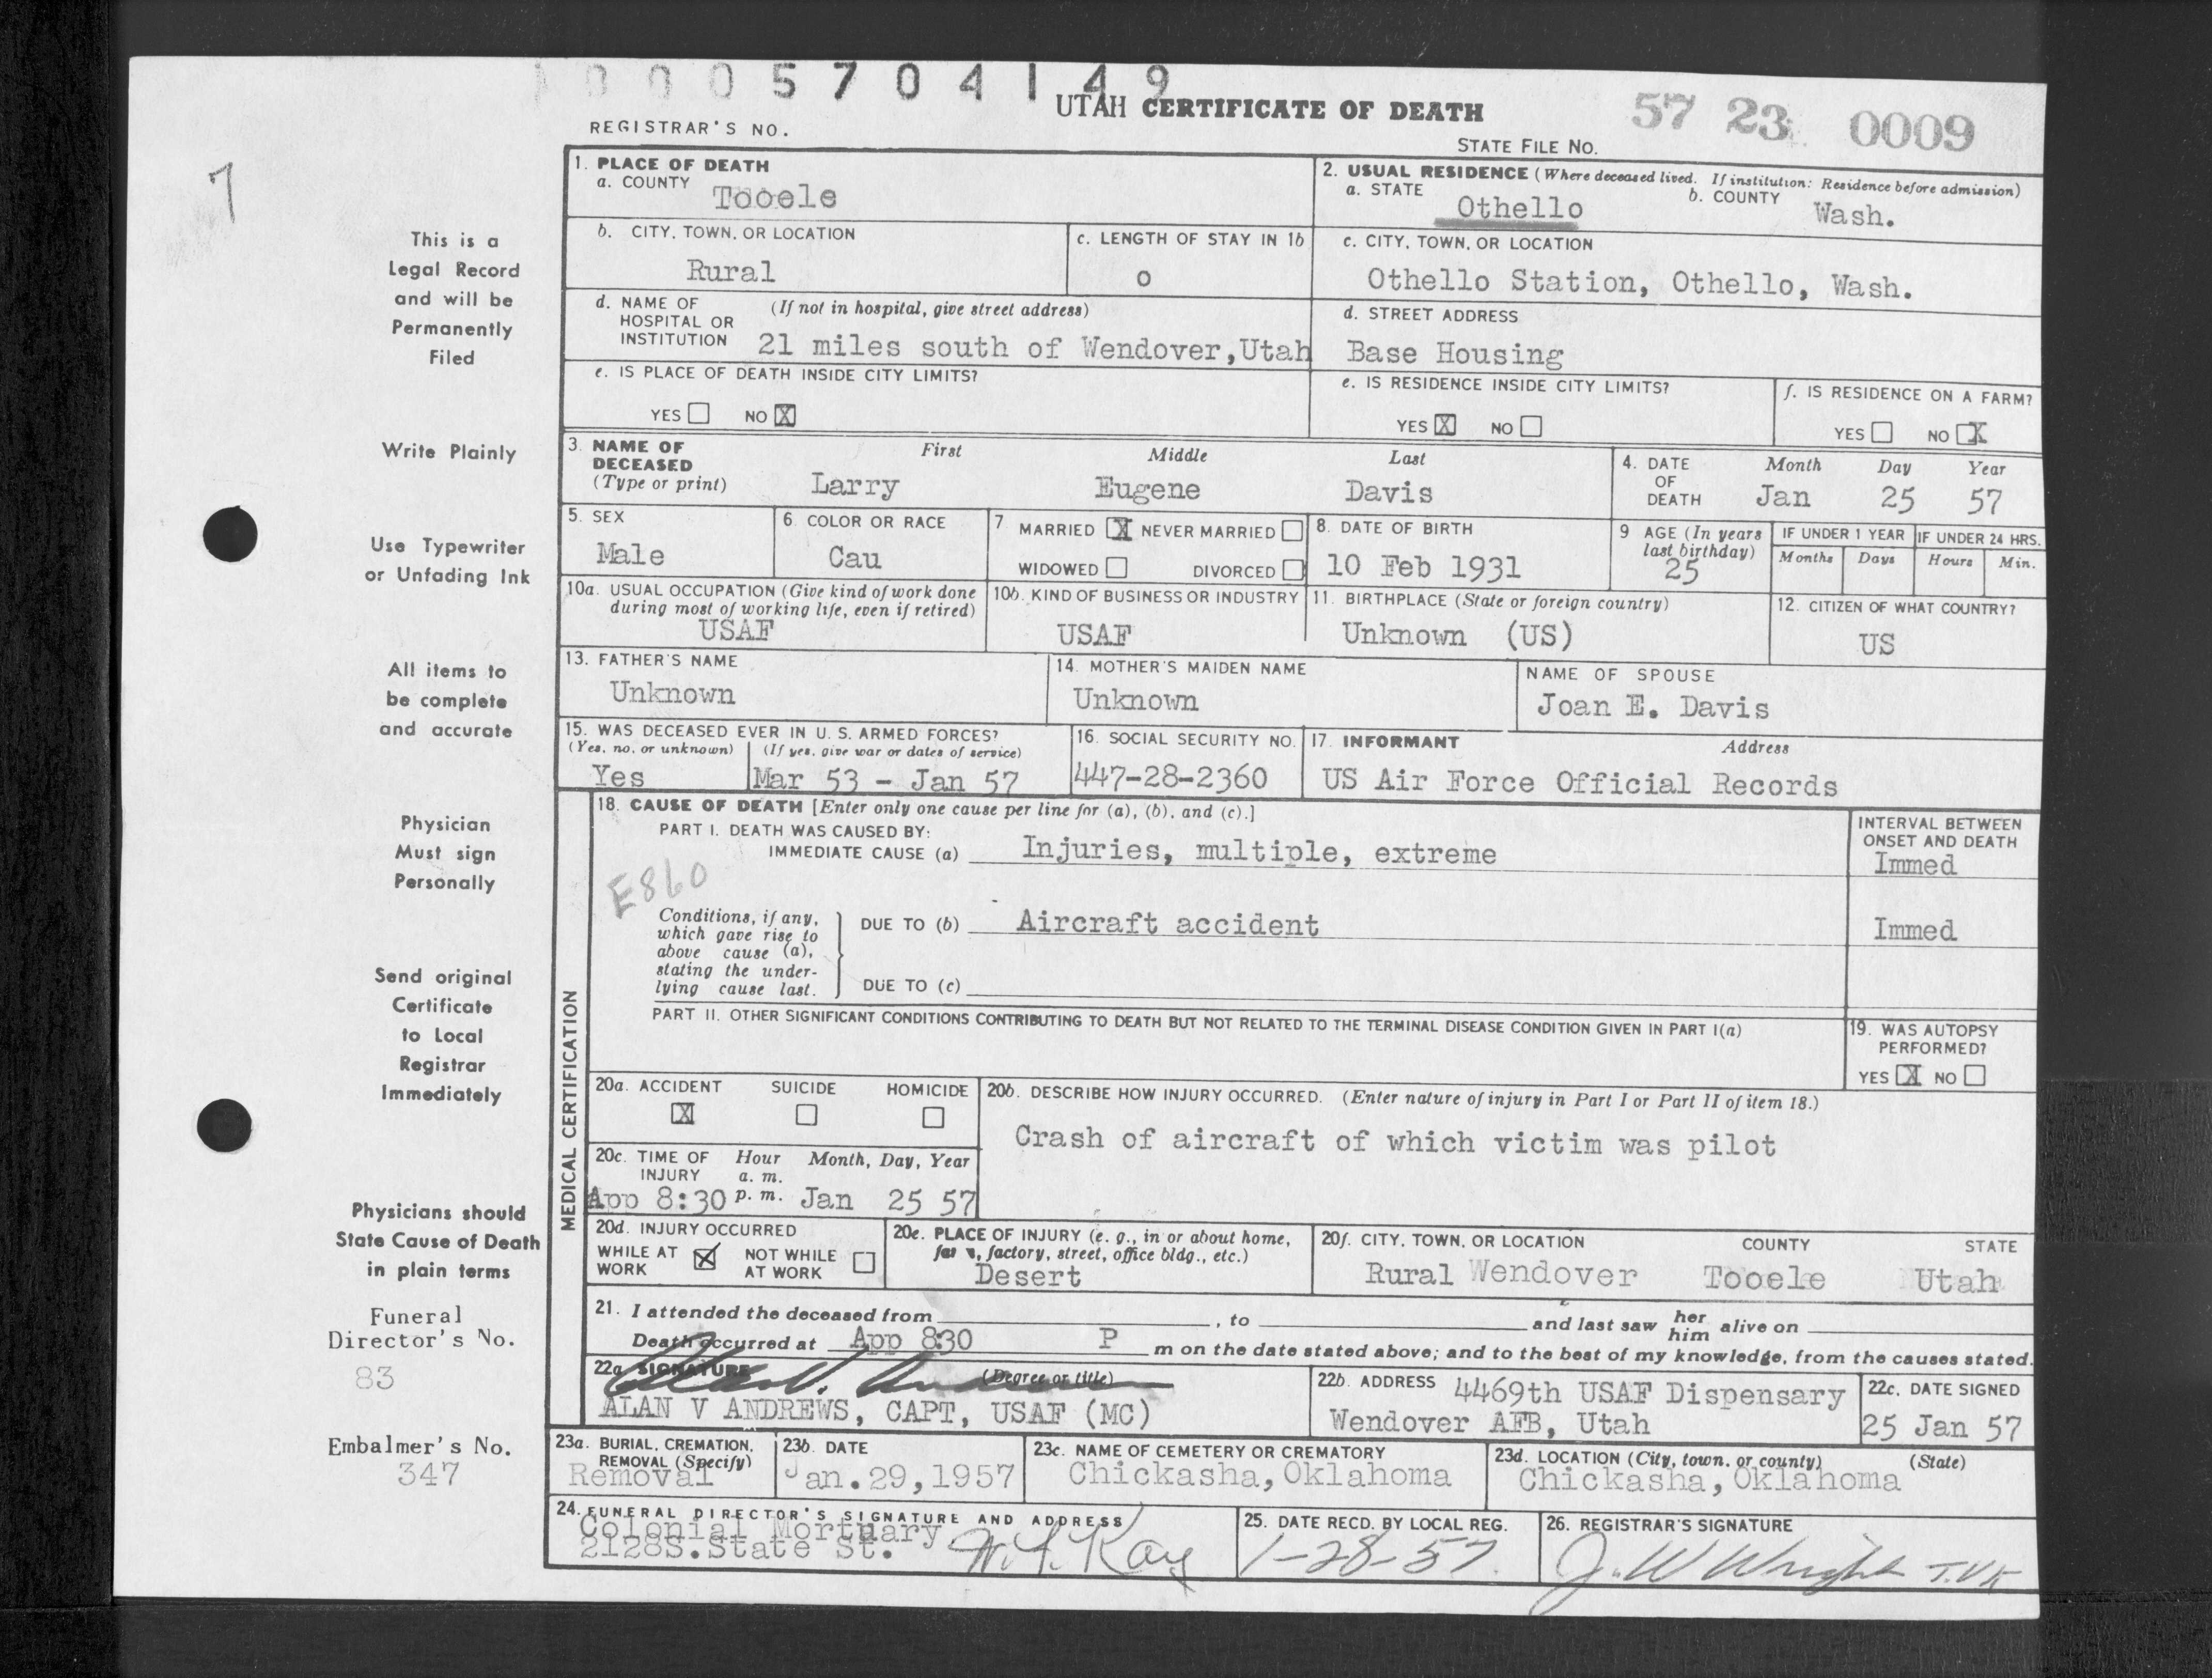 0005704149
UTAH CERTIFICATE OF DEATH
57 23 0009
REGISTRAR'S NO.
STATE FILE NO.
7
This is a
Legal Record
and will be
Permanently
Filed
Write Plainly
Use Typewriter
or Unfading Ink
All items to
be complete
and accurate
Physician
Must sign
Personally
Send original
Certificate
to Local
Registrar
Immediately
Physicians should
State Cause of Death
in plain terms
Funeral
Director's No.
83
Embalmer's No.
347
1. PLACE OF DEATH
a. COUNTY Tooele
2. USUAL RESIDENCE (Where deceased lived. If institution: Residence before admission)
a. STATE Othello b. COUNTY Wash.
b. CITY, TOWN, OR LOCATION
Rural
c. LENGTH OF STAY IN 1b
0
c. CITY, TOWN, OR LOCATION
Othello Station, Othello, Wash.
d. NAME OF HOSPITAL OR INSTITUTION (If not in hospital, give street address)
21 miles south of Wendover,Utah
d. STREET ADDRESS
Base Housing
e. IS PLACE OF DEATH INSIDE CITY LIMITS?
YES NO X
e. IS RESIDENCE INSIDE CITY LIMITS?
YES X NO
f. IS RESIDENCE ON A FARM?
YES NO X
3. NAME OF DECEASED (Type or print)
First Middle Last
Larry Eugene Davis
4. DATE OF DEATH
Month Day Year
Jan 25 57
5. SEX
Male
6. COLOR OR RACE
Cau
7. MARRIED X NEVER MARRIED
WIDOWED DIVORCED
8. DATE OF BIRTH
10 Feb 1931
9 AGE (In years last birthday)
25
IF UNDER 1 YEAR
Months Days
IF UNDER 24 HRS.
Hours Min.
10a. USUAL OCCUPATION (Give kind of work done during most of working life, even if retired)
USAF
10b. KIND OF BUSINESS OR INDUSTRY
USAF
11. BIRTHPLACE (State or foreign country)
Unknown (US)
12. CITIZEN OF WHAT COUNTRY?
US
13. FATHER'S NAME
Unknown
14. MOTHER'S MAIDEN NAME
Unknown
NAME OF SPOUSE
Joan E. Davis
15. WAS DECEASED EVER IN U. S. ARMED FORCES?
(Yes, no, or unknown) (If yes, give war or dates of service)
Yes Mar 53 - Jan 57
16. SOCIAL SECURITY NO.
447-28-2360
17. INFORMANT Address
US Air Force Official Records
MEDICAL CERTIFICATION
18. CAUSE OF DEATH [Enter only one cause per line for (a), (b), and (c).]
PART I. DEATH WAS CAUSED BY:
IMMEDIATE CAUSE (a) Injuries, multiple, extreme
INTERVAL BETWEEN ONSET AND DEATH
Immed
E860
Conditions, if any, which gave rise to above cause (a), stating the under-lying cause last.
DUE TO (b) Aircraft accident
Immed
DUE TO (c)
PART II. OTHER SIGNIFICANT CONDITIONS CONTRIBUTING TO DEATH BUT NOT RELATED TO THE TERMINAL DISEASE CONDITION GIVEN IN PART I(a)
19. WAS AUTOPSY PERFORMED?
YES X NO
20a. ACCIDENT SUICIDE HOMICIDE
X
20b. DESCRIBE HOW INJURY OCCURRED. (Enter nature of injury in Part I or Part II of item 18.)
Crash of aircraft of which victim was pilot
20c. TIME OF INJURY Hour a. m. p. m. Month, Day, Year
App 8:30 Jan 25 57
20d. INJURY OCCURRED
WHILE AT WORK X NOT WHILE AT WORK
20e. PLACE OF INJURY (e. g., in or about home, farm, factory, street, office bldg., etc.)
Desert
20f. CITY, TOWN, OR LOCATION COUNTY STATE
Rural Wendover Tooele Utah
21. I attended the deceased from , to and last saw her him alive on
Death occurred at App 830 P m on the date stated above; and to the best of my knowledge, from the causes stated.
22a SIGNATURE (Degree or title)
ALAN V ANDREWS, CAPT, USAF (MC)
22b. ADDRESS 4469th USAF Dispensary
Wendover AFB, Utah
22c. DATE SIGNED
25 Jan 57
23a. BURIAL, CREMATION, REMOVAL (Specify)
Removal
23b. DATE
Jan.29,1957
23c. NAME OF CEMETERY OR CREMATORY
Chickasha,Oklahoma
23d. LOCATION (City, town, or county) (State)
Chickasha,Oklahoma
24. FUNERAL DIRECTOR'S SIGNATURE AND ADDRESS
Colonial Mortuary
2128S.State St. W. S. Kay
25. DATE RECD. BY LOCAL REG.
1-28-57.
26. REGISTRAR'S SIGNATURE
J. W Wright T.V.K